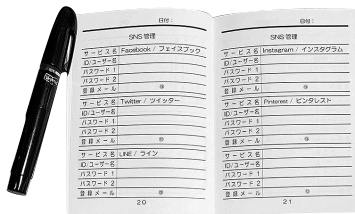 日付:
SNS 管理
サービス名 Facebook / フェイスブック
ID/ユーザー名
パスワード 1
パスワード 2
登録メール @
サービス名 Twitter / ツイッター
ID/ユーザー名
パスワード 1
パスワード 2
登録メール @
サービス名 LINE / ライン
ID/ユーザー名
パスワード 1
パスワード 2
登録メール @
20
日付:
SNS 管理
サービス名 Instagram / インスタグラム
ID/ユーザー名
パスワード 1
パスワード 2
登録メール @
サービス名 Pinterest / ピンタレスト
ID/ユーザー名
パスワード 1
パスワード 2
登録メール @
サービス名
ID/ユーザー名
パスワード 1
パスワード 2
登録メール @
21